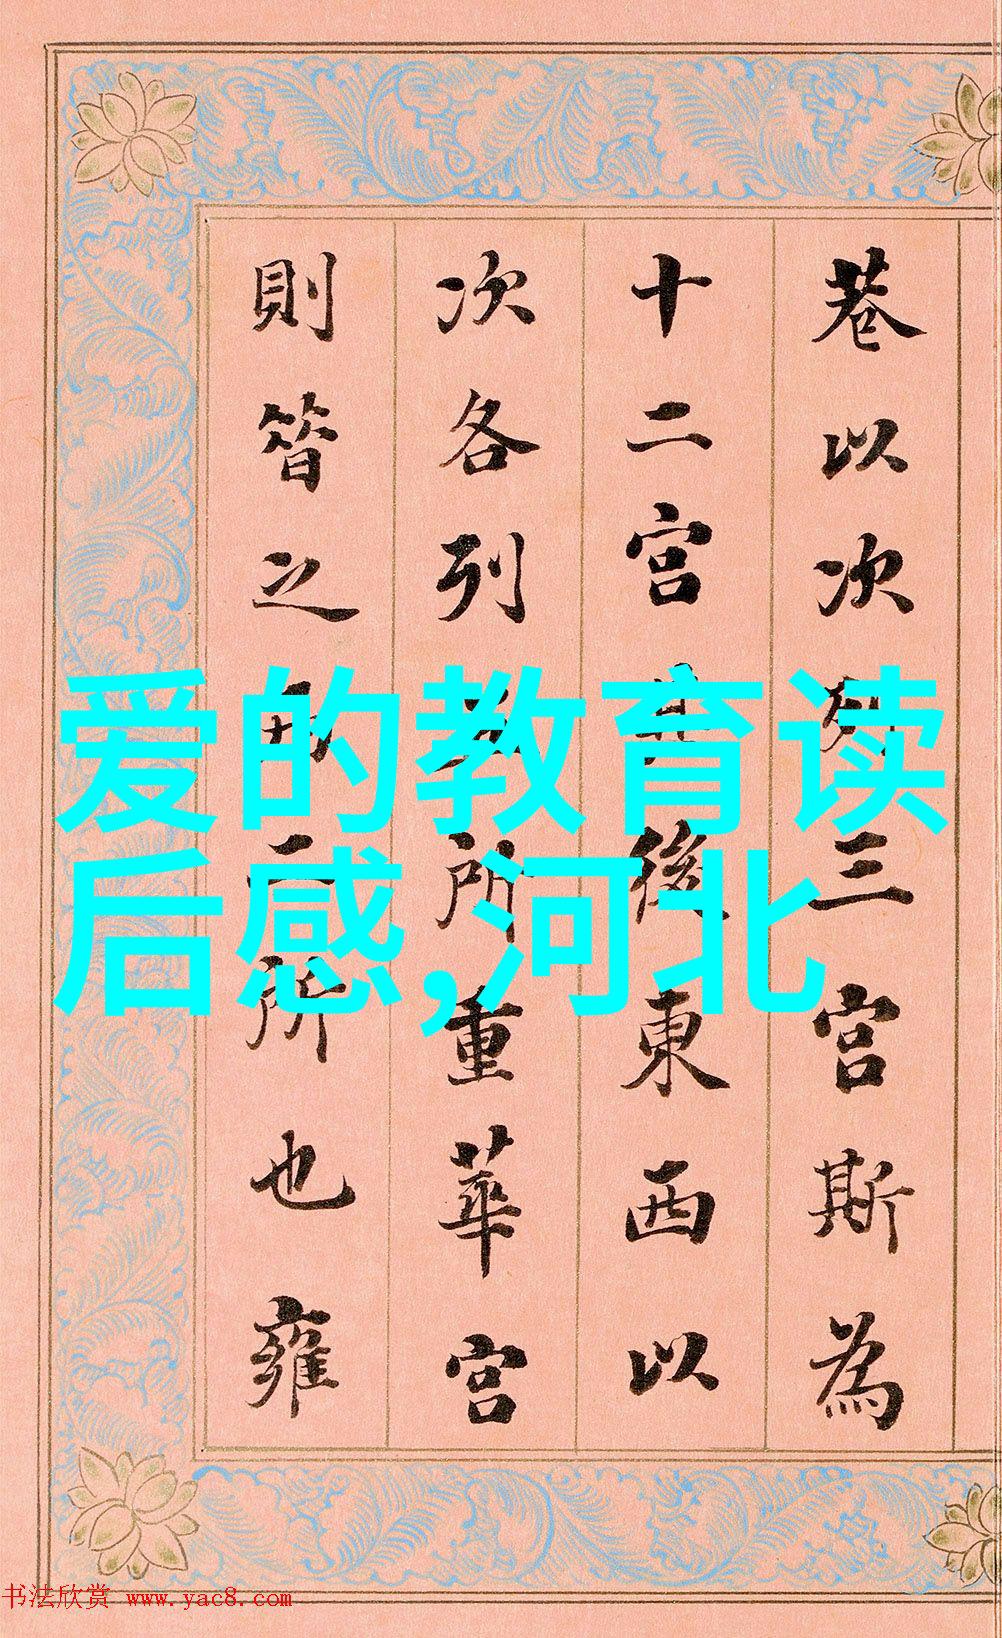 巷以次列三宫斯為
十二宫其後東西以
次各列五所重華宫
則昝之西二所也雍
爱的教育读
后感,河北
书法欣赏 www.yac8.com